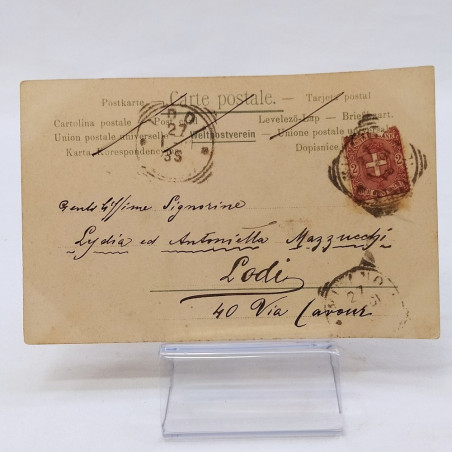 Postkarte — Carte postale. — Tarjeta postal
Cartolina postale — Levelező-Lap — Brief
Union postale universelle Weltpostverein — Unione postale
Karta Korespondenc Dopisnice
P.O
27
35
2 2
Gentilissime Signorine
Lydia ed Antonietta Mazzucchi
Lodi
40 Via Cavour
27
01